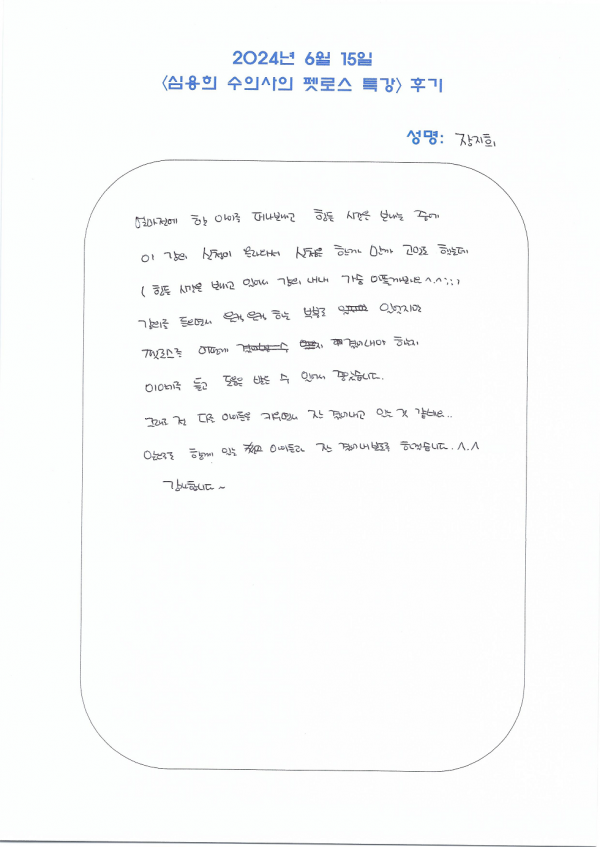 2024년 6월 15일
<심용희 수의사의 펫로스 특강> 후기
성명: 장지희
얼마전에 한 아이를 떠나보내고 힘든 시간을 보내는 중에
이 강의 신청이 올라와서 신청을 할까 말까 고민도 했는데
( 힘든 시간을 보내고 있어서 강의 내내 가슴 아플게뻔하므로 ^.^;;;)
강의를 들으면서 울컥울컥 하는 부분도 있었지만
펫로스를 어떻게 이겨내야 할지
이야기를 듣고 도움을 받을 수 있어서 좋았습니다.
그리고 전 다른 아이들을 키우면서 잘 이겨내고 있는 것 같네요..
앞으로도 함께 있는 아이들과 잘 이겨내보도록 하겠습니다. ^.^
감사합니다~